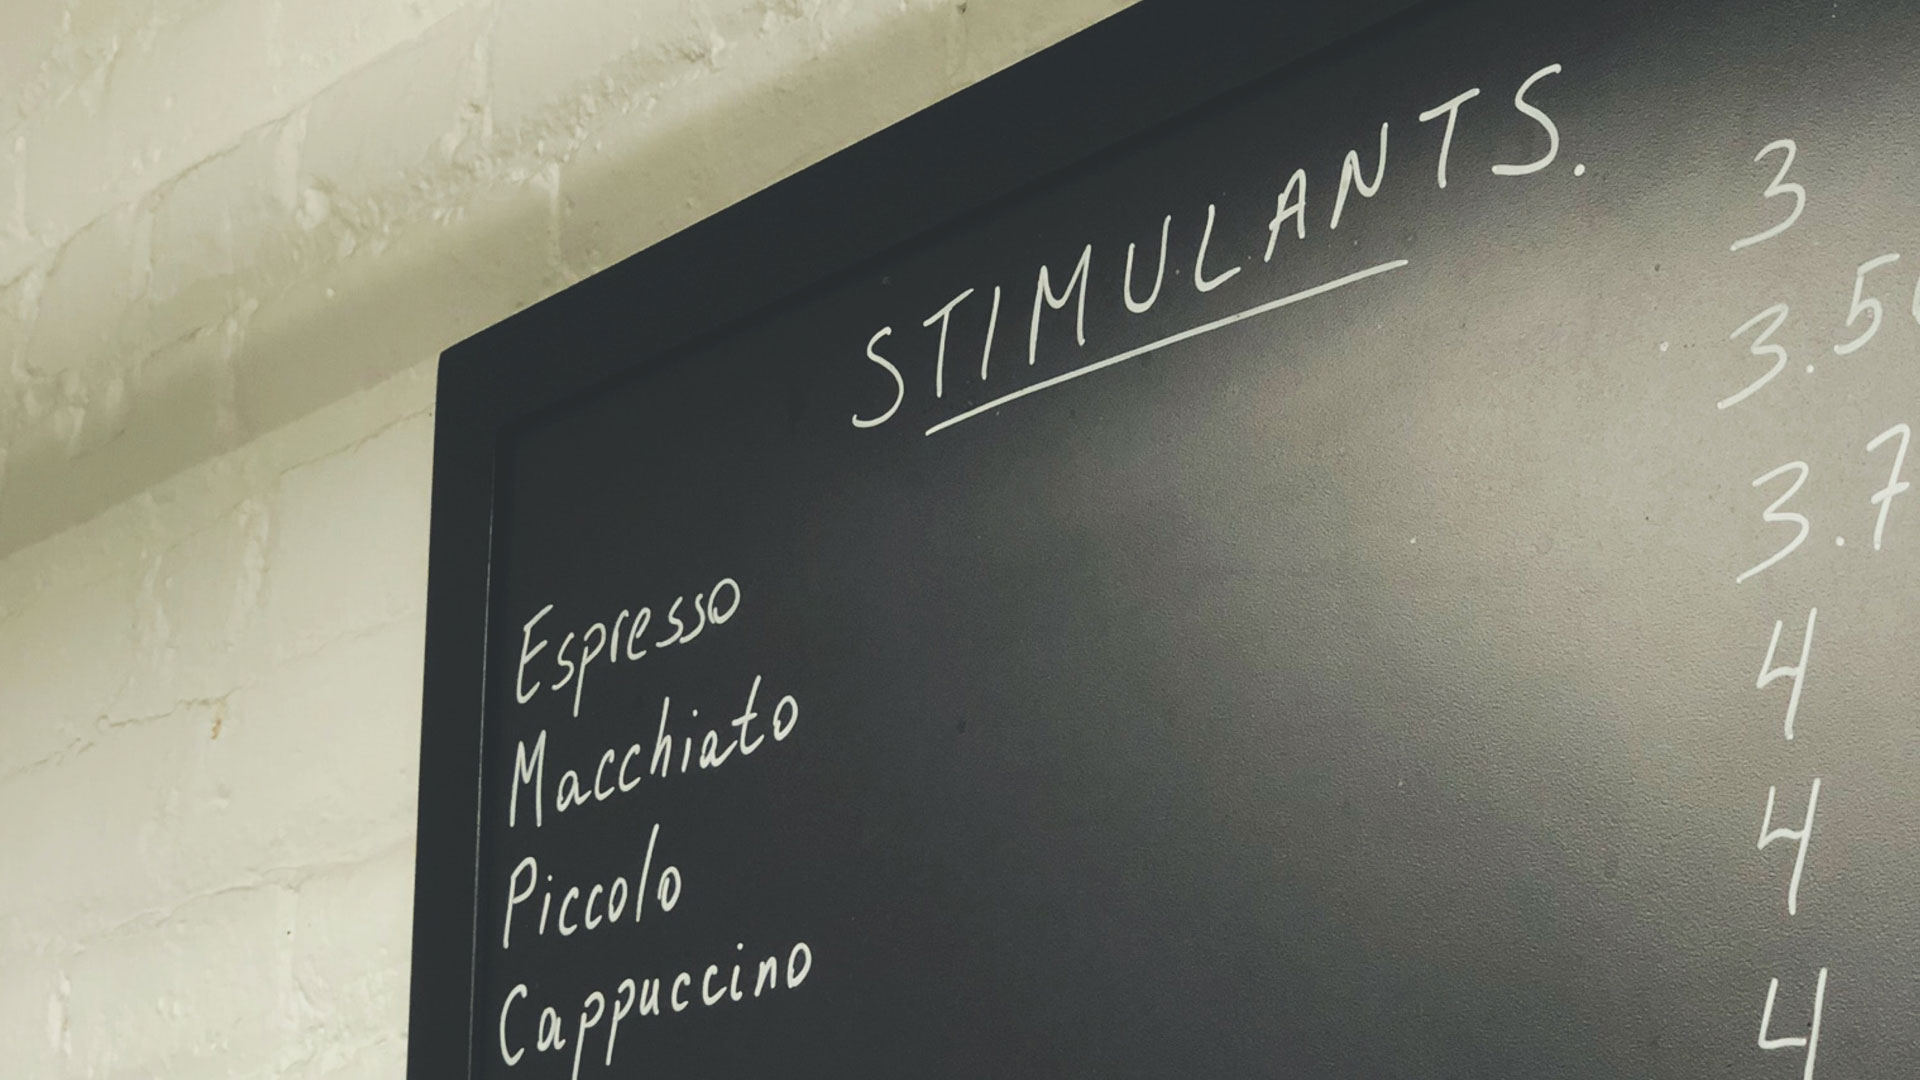 STIMULANTS.
Espresso 3
Macchiato 3.5
Piccolo 3.7
Cappuccino 4
4
4